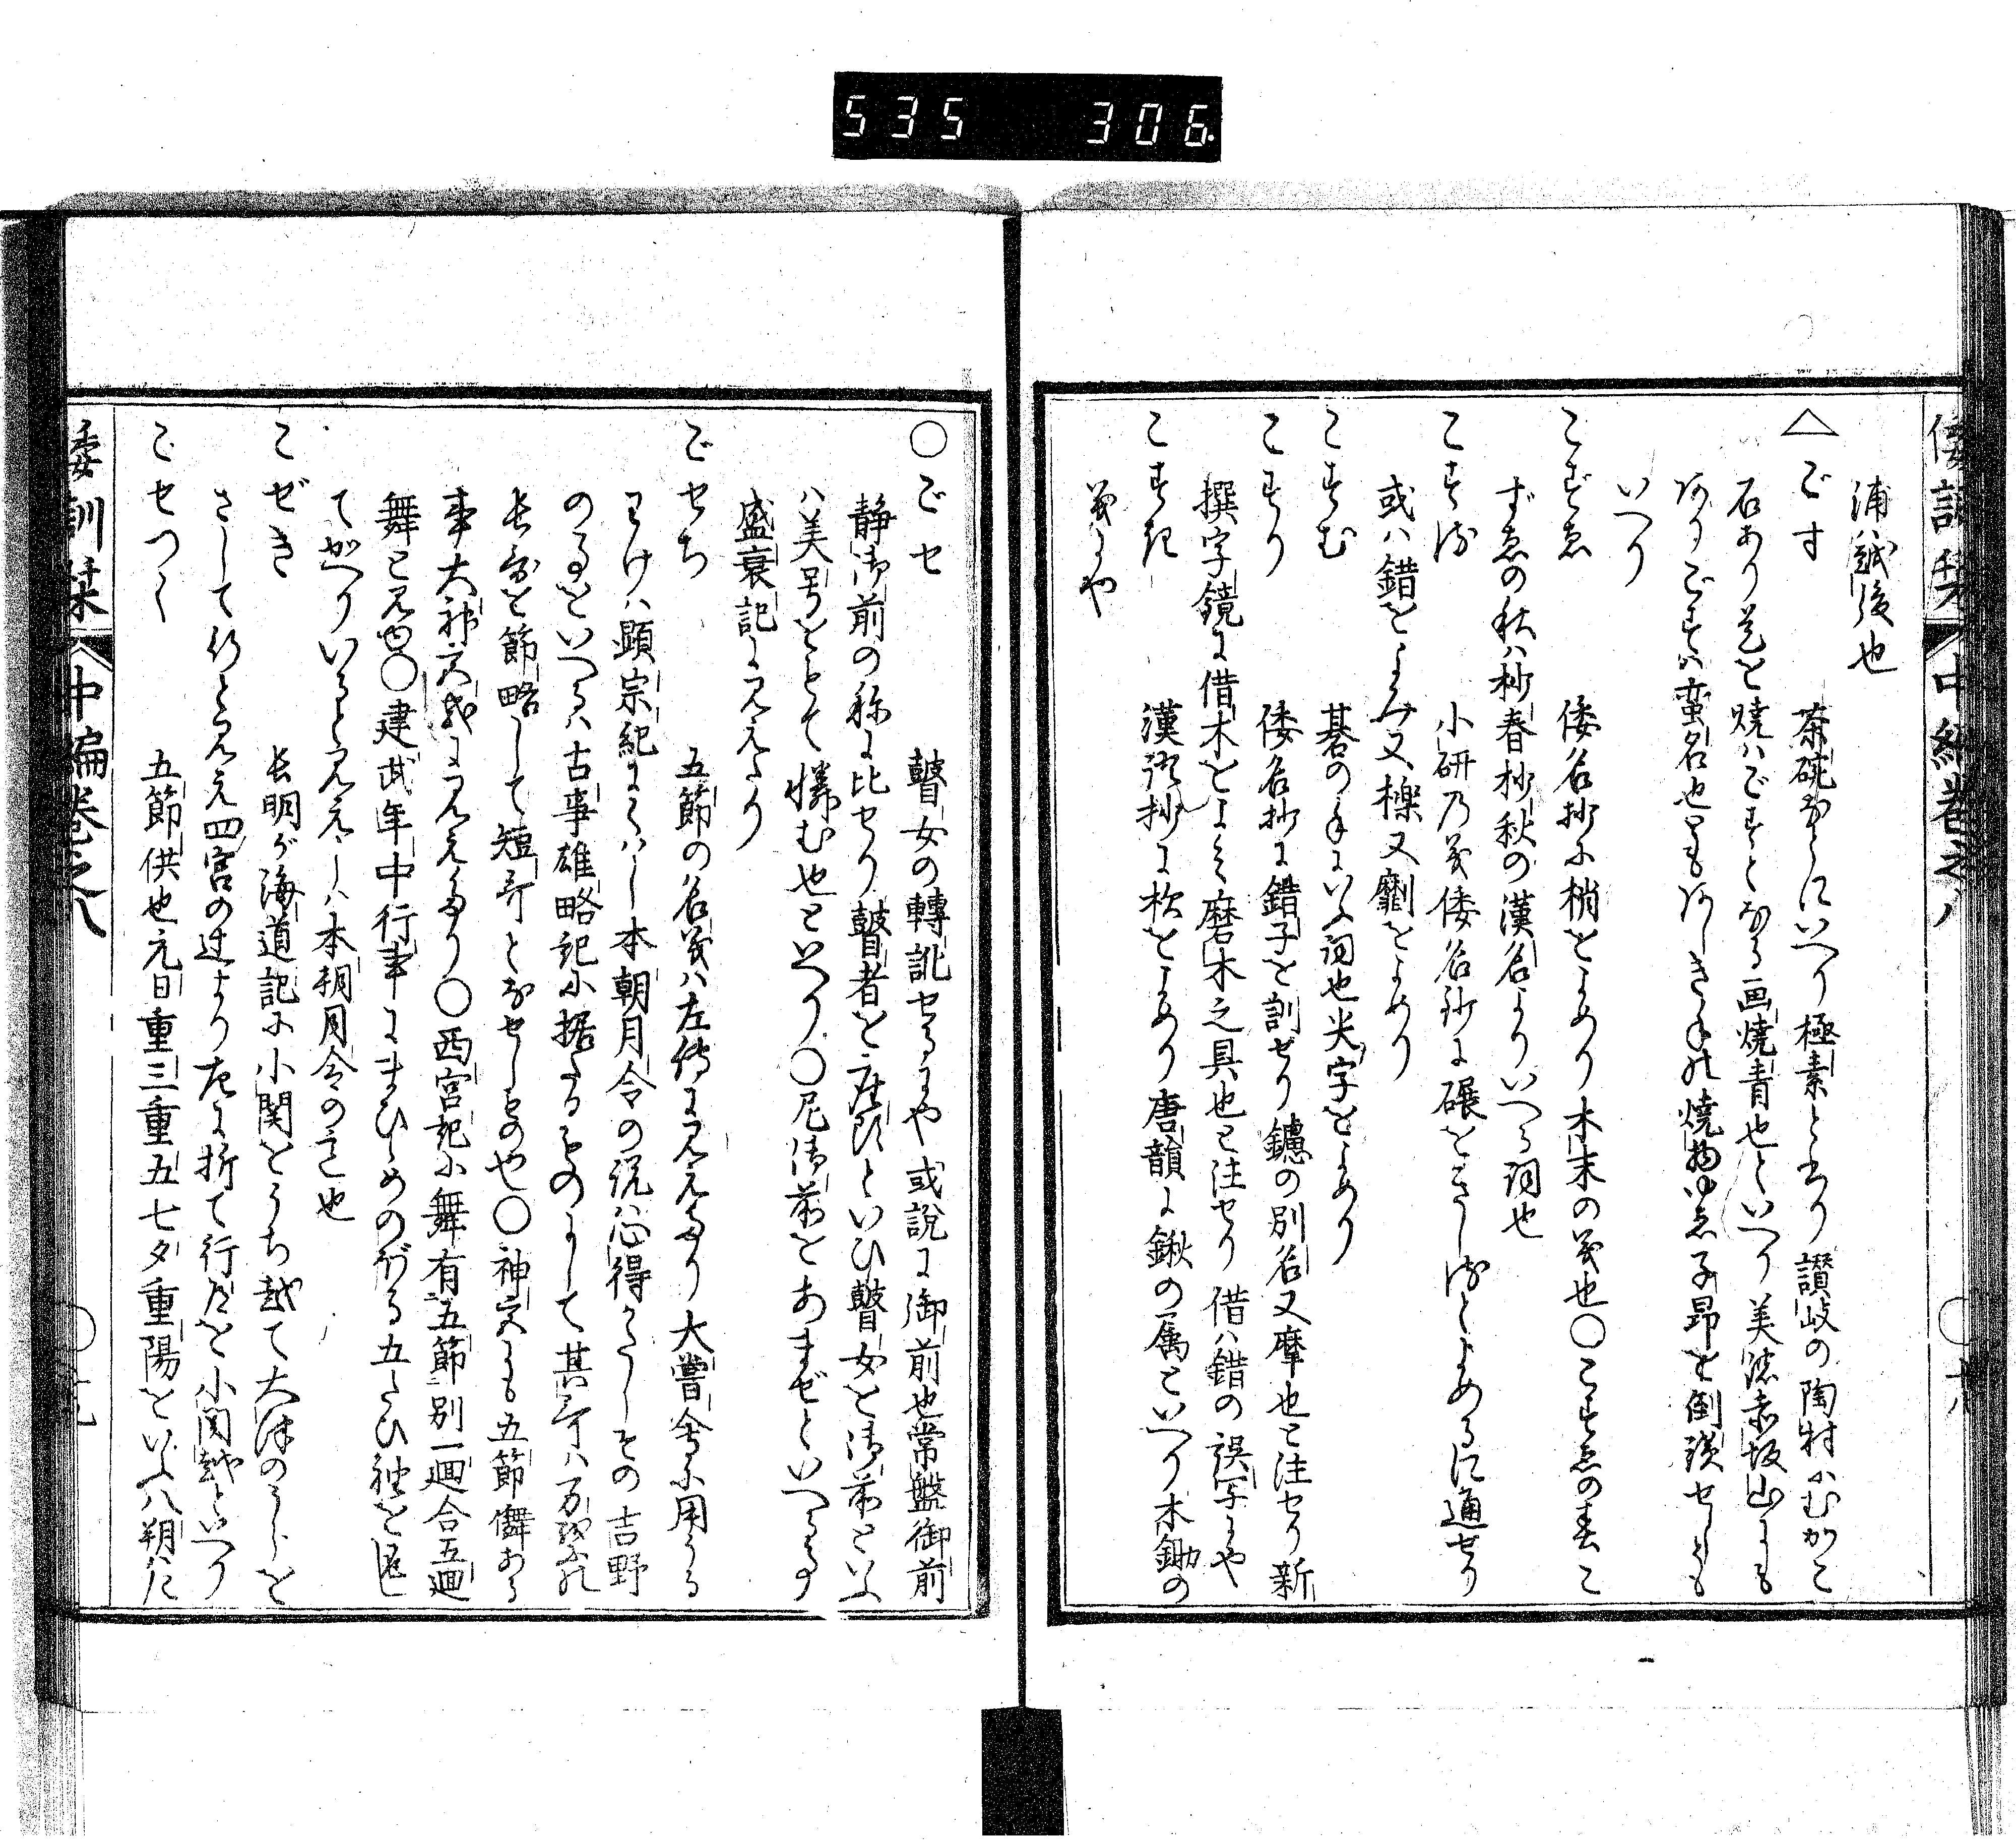 535 306.
倭訓栞 中編巻之八 ○十八
浦ハ越後也
△ごす 茶碗などにいへり極素と書り讃岐の陶村にむかこ
石あり是を焼ハごすとなる画焼青也といへり美濃赤坂山にも
ありごすハ蛮名也
いへり
こずゑ 倭名抄に梢をよめり木末の義也○こずゑの春こ
ずゑの秋ハ杪春杪秋の漢名よりいへる詞也
こする 小研の義倭名鈔に碾をきしるとよめるに通せり
或ハ錯をよみ又擽又劘をよめり
こすむ 碁の手にいふ詞也尖字をよめり
こすり 倭名抄に錯子を訓ぜり鑢の別名又摩也と注せり新
撰字鏡に借木をよミ磨木之具也と注せり借ハ錯の誤字にや
こすき 漢語抄に杴をよめり唐韻に鍬の属といへり木鋤の
義にや
○ごせ 瞽女の轉訛せるにや或説に御前也常盤御前
静御前の称に比せり瞽者を座頭といひ瞽女を御前といふ
ハ美号をもて憐む也といへり○尼御前をあまぜといへる事
盛衰記にみえたり
ごせち 五節の名義ハ左傳にみえたり大嘗会に用うる
わけハ顕宗紀にくハし本朝月令の説ハ心得がたしその吉野
のことをいへるハ古事雄略記に据たるものにして其哥ハ万葉の
長哥を節略して短哥となせしものや○神宮にも五節儛ある
事大神宮式にみえたり○西宮記に舞有五節別一廻合五廻
舞とみゆ○建武年中行事にまひひめのぼる五たひ袖を返し
てがへりいるとみえしハ本朝月令の意也
こぜき 長明が海道記に小関をうち越て大津のうらを
さして行とみえ四宮の辻より左に折て行道を小関越といへり
ごせつく 五節供也元日重三重五七夕重陽をいふ八朔は
倭訓栞 中編巻之八 ○十九